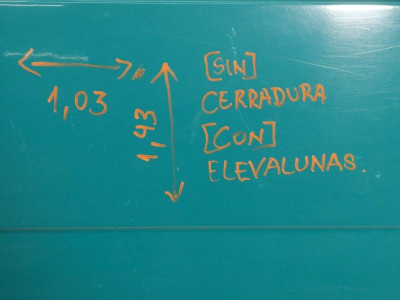 1,03
1,43
[SIN]
CERRADURA
[CON]
ELEVALUNAS.